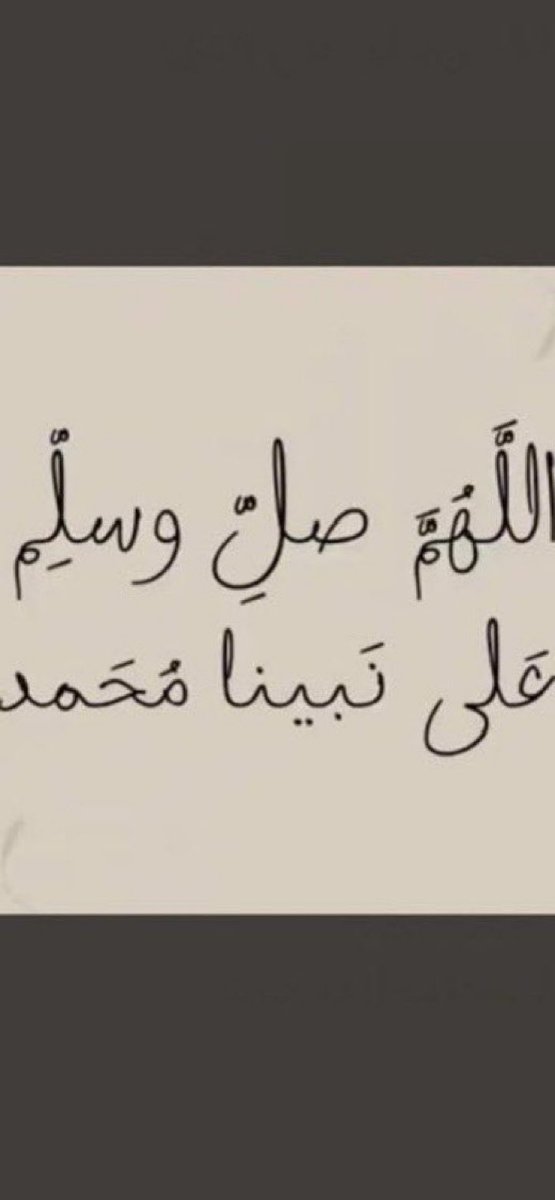 اللَّهُمَّ صلِّ وسلِّم
عَلى نَبينا مُحَمد